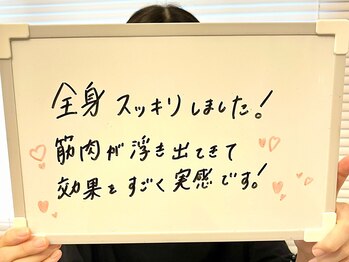 全身 スッキリしました!
筋肉が浮き出てきて
効果をすごく実感です!